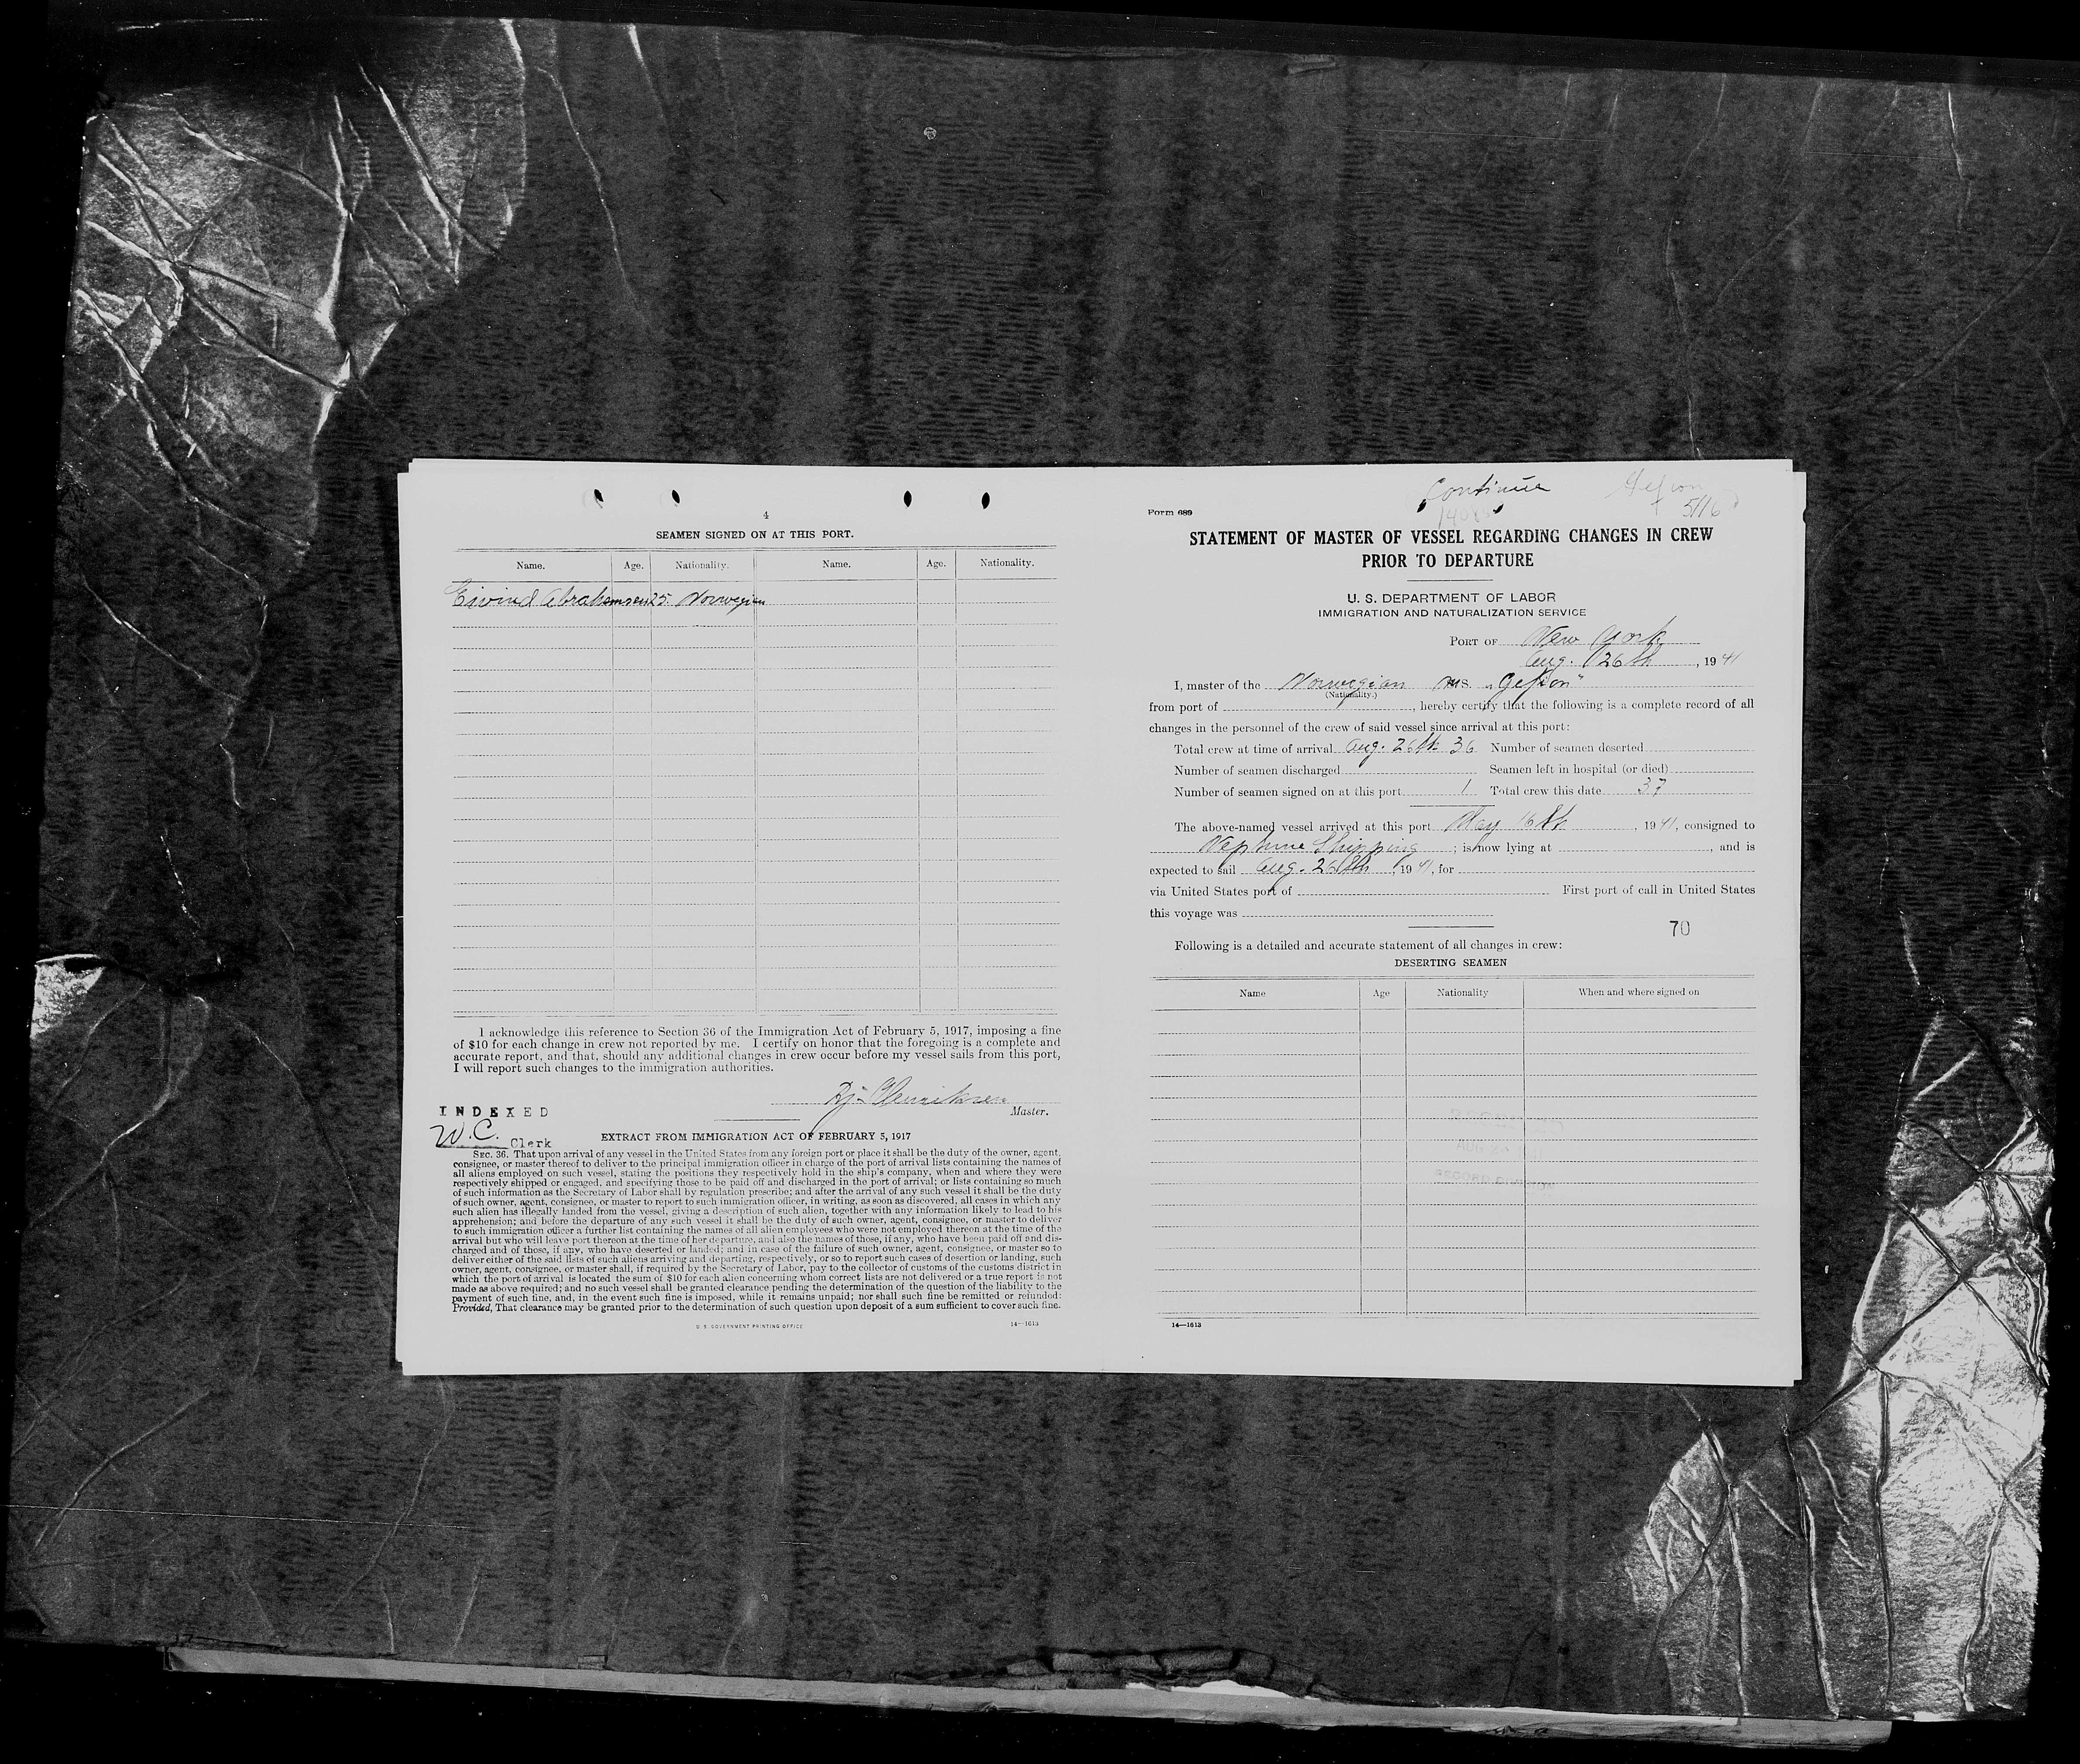 4
SEAMEN SIGNED ON AT THIS PORT.
Name. Age. Nationality. Name. Age. Nationality.
Eivind Abrahamsen 25 Norwegian
I acknowledge this reference to Section 36 of the Immigration Act of February 5, 1917, imposing a fine
of $10 for each change in crew not reported by me. I certify on honor that the foregoing is a complete and
accurate report, and that, should any additional changes in crew occur before my vessel sails from this port,
I will report such changes to the immigration authorities.
Henriksen
Master.
INDEXED
W.C. Clerk
EXTRACT FROM IMMIGRATION ACT OF FEBRUARY 5, 1917
SEC. 36. That upon arrival of any vessel in the United States from any foreign port or place it shall be the duty of the owner, agent,
consignee, or master thereof to deliver to the principal immigration officer in charge of the port of arrival lists containing the names of
all aliens employed on such vessel, stating the positions they respectively hold in the ship's company, when and where they were
respectively shipped or engaged, and specifying those to be paid off and discharged in the port of arrival; or lists containing so much
of such information as the Secretary of Labor shall by regulation prescribe; and after the arrival of any such vessel it shall be the duty
of such owner, agent, consignee, or master to report to such immigration officer, in writing, as soon as discovered, all cases in which any
such alien has illegally landed from the vessel, giving a description of such alien, together with any information likely to lead to his
apprehension; and before the departure of any such vessel it shall be the duty of such owner, agent, consignee, or master to deliver
to such immigration officer a further list containing the names of all alien employees who were not employed thereon at the time of the
arrival but who will leave port thereon at the time of her departure, and also the names of those, if any, who have been paid off and dis-
charged and of those, if any, who have deserted or landed; and in case of the failure of such owner, agent, consignee, or master so to
deliver either of the said lists of such aliens arriving and departing, respectively, or so to report such cases of desertion or landing, such
owner, agent, consignee, or master shall, if required by the Secretary of Labor, pay to the collector of customs of the customs district in
which the port of arrival is located the sum of $10 for each alien concerning whom correct lists are not delivered or a true report is not
made as above required; and no such vessel shall be granted clearance pending the determination of the question of the liability to the
payment of such fine, and, in the event such fine is imposed, while it remains unpaid; nor shall such fine be remitted or refunded:
Provided, That clearance may be granted prior to the determination of such question upon deposit of a sum sufficient to cover such fine.
U. S. GOVERNMENT PRINTING OFFICE 14—1613
Continue Gefion
5/16
Form 689
STATEMENT OF MASTER OF VESSEL REGARDING CHANGES IN CREW
PRIOR TO DEPARTURE
U. S. DEPARTMENT OF LABOR
IMMIGRATION AND NATURALIZATION SERVICE
PORT OF New York
Aug. 26th, 1941
I, master of the Norwegian MS. "Gefion"
(Nationality.)
from port of , hereby certify that the following is a complete record of all
changes in the personnel of the crew of said vessel since arrival at this port:
Total crew at time of arrival Aug. 26th 36 Number of seamen deserted
Number of seamen discharged Seamen left in hospital (or died)
Number of seamen signed on at this port 1 Total crew this date 37
The above-named vessel arrived at this port May 16th, 1941, consigned to
Neptune Shipping ; is now lying at , and is
expected to sail Aug. 26th, 1941, for
via United States port of First port of call in United States
this voyage was
70
Following is a detailed and accurate statement of all changes in crew:
DESERTING SEAMEN
Name Age Nationality When and where signed on
14—1613